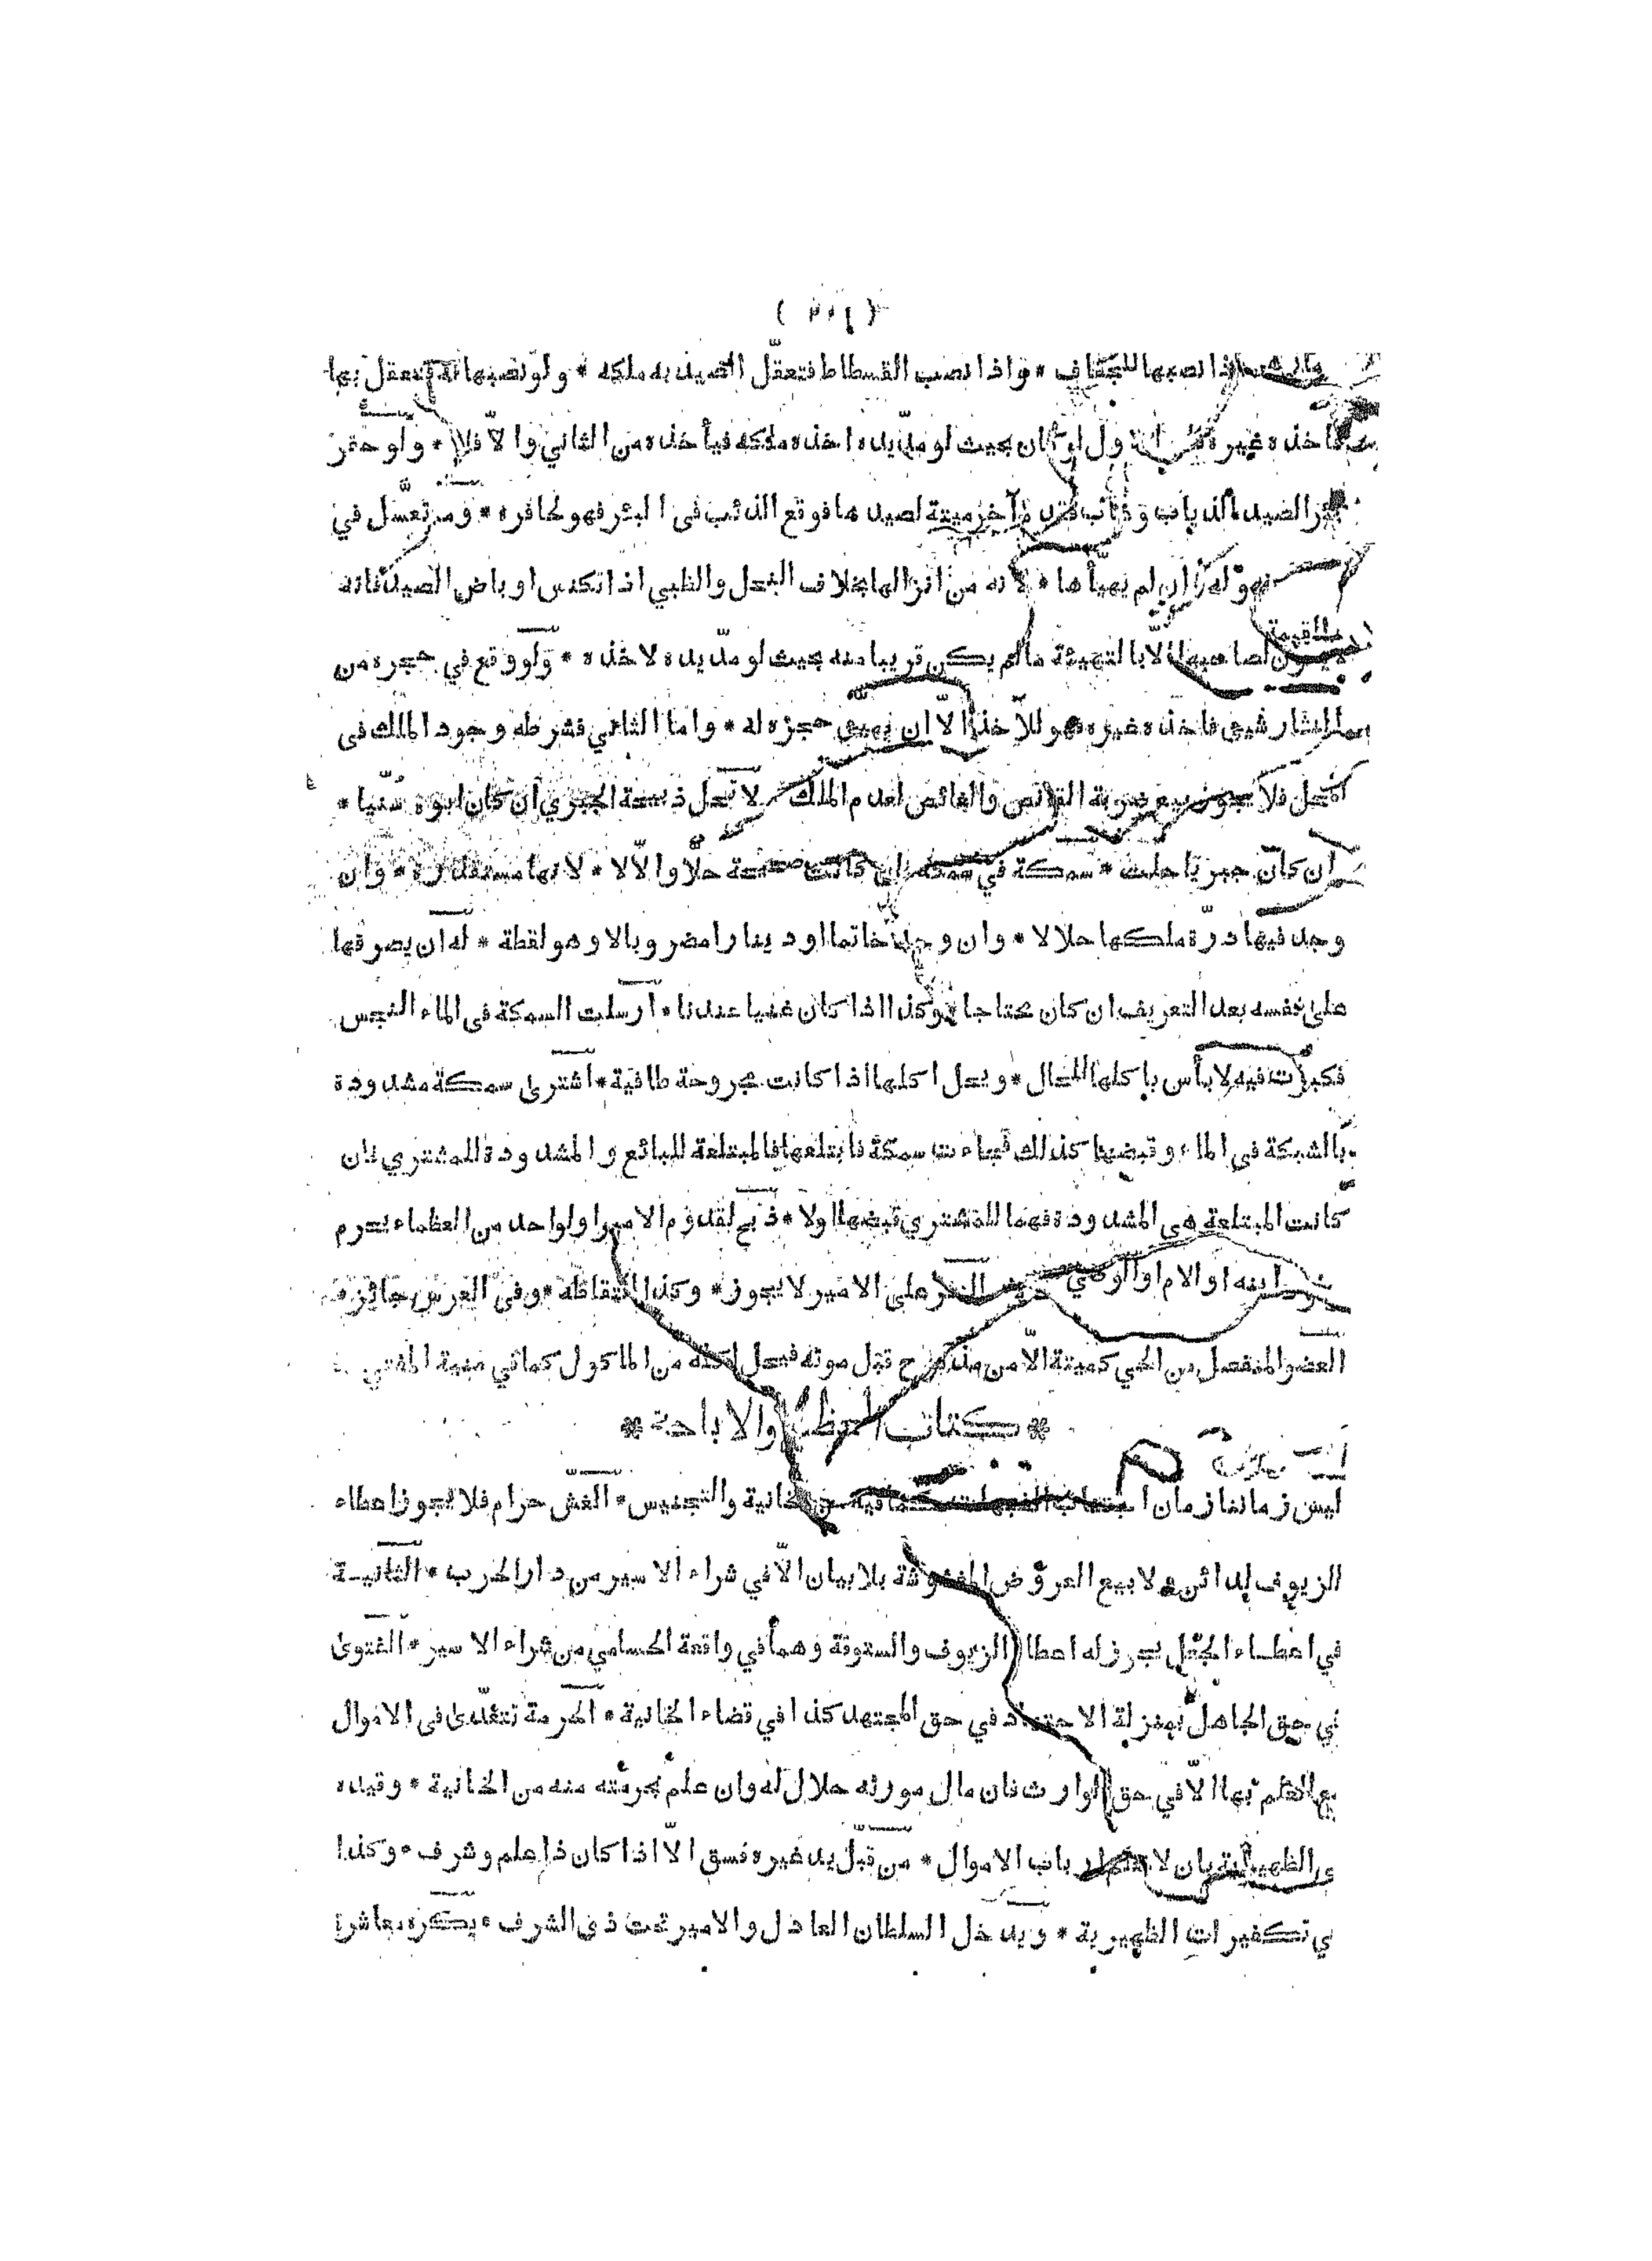 اذا نصبها للجفاف * واذا نصب الفسطاط فتعقل الصيد به ملكه * ولو نصبها له فتعقل بها
فاخذه غيره الاول لو كان بحيث لو مدّ يده اخذه ملكه فيأخذه من الثاني والّا فلا * ولو حفر
الصيد الذياب آخر ميتة لصيدها فوقع الذئب فى البئر فهو لحافره * ومن تعسّل في
فهو له وان لم يهيأها * لانه من انزالها بخلاف النحل والظبي اذا تكنس او باض الصيد فانه
لا يكون لصاحبها الّا بالتهيئة ما لم يكن قريبا منه بحيث لو مدّ يده لاخذه * ولو وقع في حجره من
النثار شيئ فاخذه غيره فهو للآخذ الّا ان يهيئ حجره له * واما الثاني فشرطه وجود الملك فى
المحل فلا يجوز بيع ضربة القانص والغائص لعدم الملك * لا تحل ذبيحة الجبري ان كان ابوه سنّيا *
وان كان جبريا حلت * سمكة في سمكة ان كانت صحيحة حلّا والّا لا * لانها مستقذرة * وان
وجد فيها درّة ملكها حلالا * وان وجد خاتما او دينارا مضروبا لا وهو لقطة * له ان يصرفها
على نفسه بعد التعريف ان كان محتاجا * وكذا اذا كان غنيا عندنا * ارسلت السمكة فى الماء النجس
فكبرت فيه لا بأس باكلها للحال * ويحل اكلها اذا كانت مجروحة طافية * اشترى سمكة مشدودة
بالشبكة فى الماء وقبضها كذلك فجاءت سمكة فابتلعتها فالمبتلعة للبائع والمشدودة للمشتري فان
كانت المبتلعة هى المشدودة فهما للمشتري قبضها اولا * ذبح لقدوم الامير او لواحد من العظماء يحرم
ابنه او الام او النثر على الامير لا يجوز * وكذا التقاطه * وفى العرس جائز *
العضو المنفصل من الحي كميتة الّا من مذبوح قبل موته فيحل اكله من الماكول كما في منية المفتي
* كتاب الحظر والاباحة *
ليس زماننا زمان اجتناب الشبهات كما فيه من الخانية والتجنيس * الغش حرام فلا يجوز اعطاء
الزيوف لدائن ولا بيع العروض المغشوشة بلا بيان الّا في شراء الاسير من دار الحرب * الثانية
في اعطاء الجعل يجوز له اعطا الزيوف والستوقة وهما في واقعة الحسامي من شراء الاسير * الفتوى
في حق الجاهل بمنزلة الاجتهاد في حق المجتهد كذا في قضاء الخانية * الحرمة تتعدّى فى الاموال
مع العلم بها الّا في حق الوارث فان مال مورثه حلال له وان علم بحرمته منه من الخانية * وقيده
فى الظهيرية بان لا يعلم ارباب الاموال * من قبّل يد غيره فسق الّا اذا كان ذا علم وشرف * وكذا
في تكفيرات الظهيرية * ويدخل السلطان العادل والامير تحت ذى الشرف * يكره معاشرة